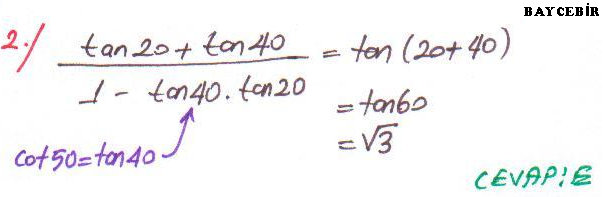 BAYCEBİR
2./ (tan20 + tan40) / (1 - tan40 . tan20) = tan (20+40)
= tan60
= √3
cot50=tan40
CEVAP: E